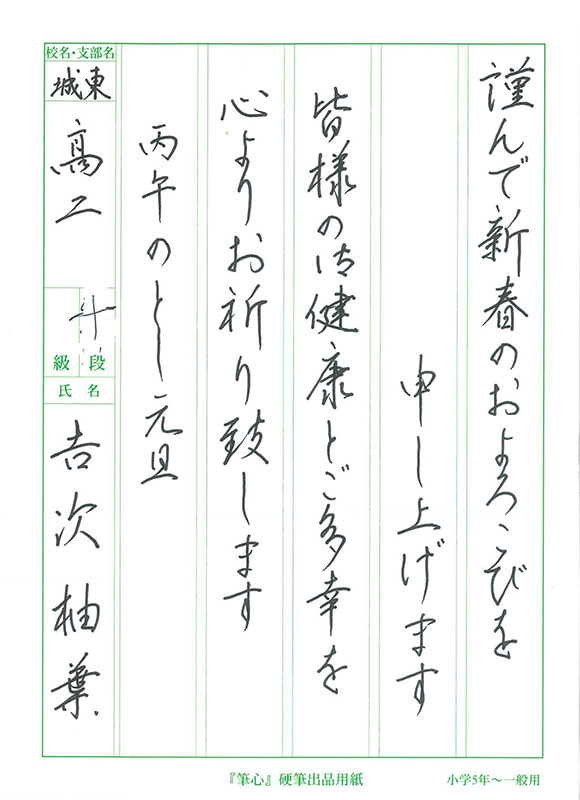 謹んで新春のおよろこびを
申し上げます
皆様の御健康とご多幸を
心よりお祈り致します
丙午のとし元旦
校名・支部名
城東
高二
級 段
氏名
吉次柚葉
『筆心』硬筆出品用紙
小学5年～一般用